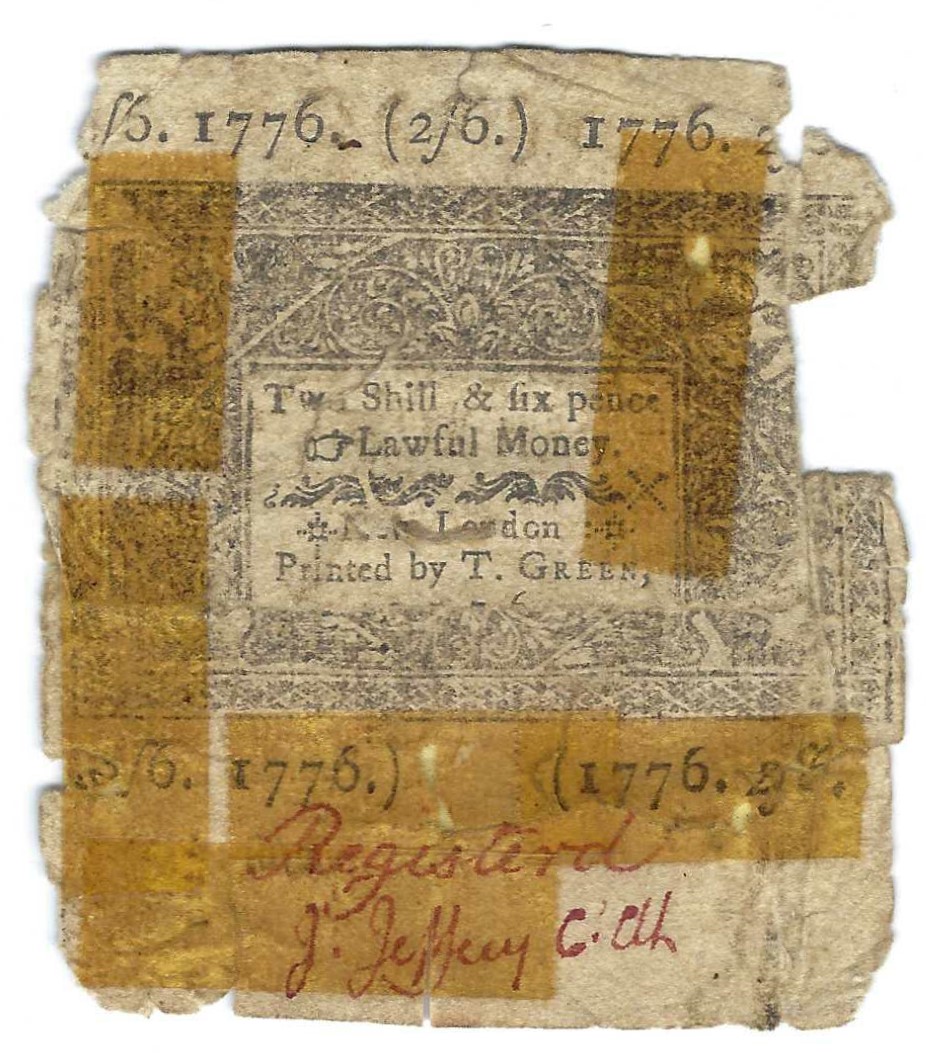 /6. 1776. (2/6.) 1776. 2
Two Shill & ſix pence
☞ Lawful Money.
London
Printed by T. GREEN,
/6. 1776.) (1776.
Registerd
J. Jeffery C. Clk